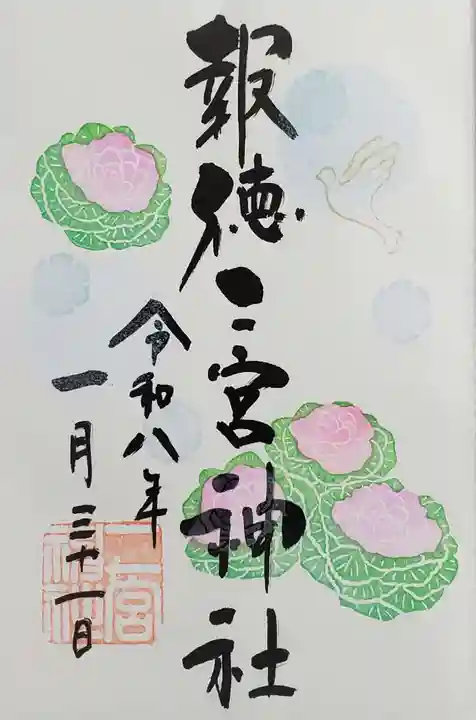 報徳二宮神社
令和八年
一月三十一日
二宮神社